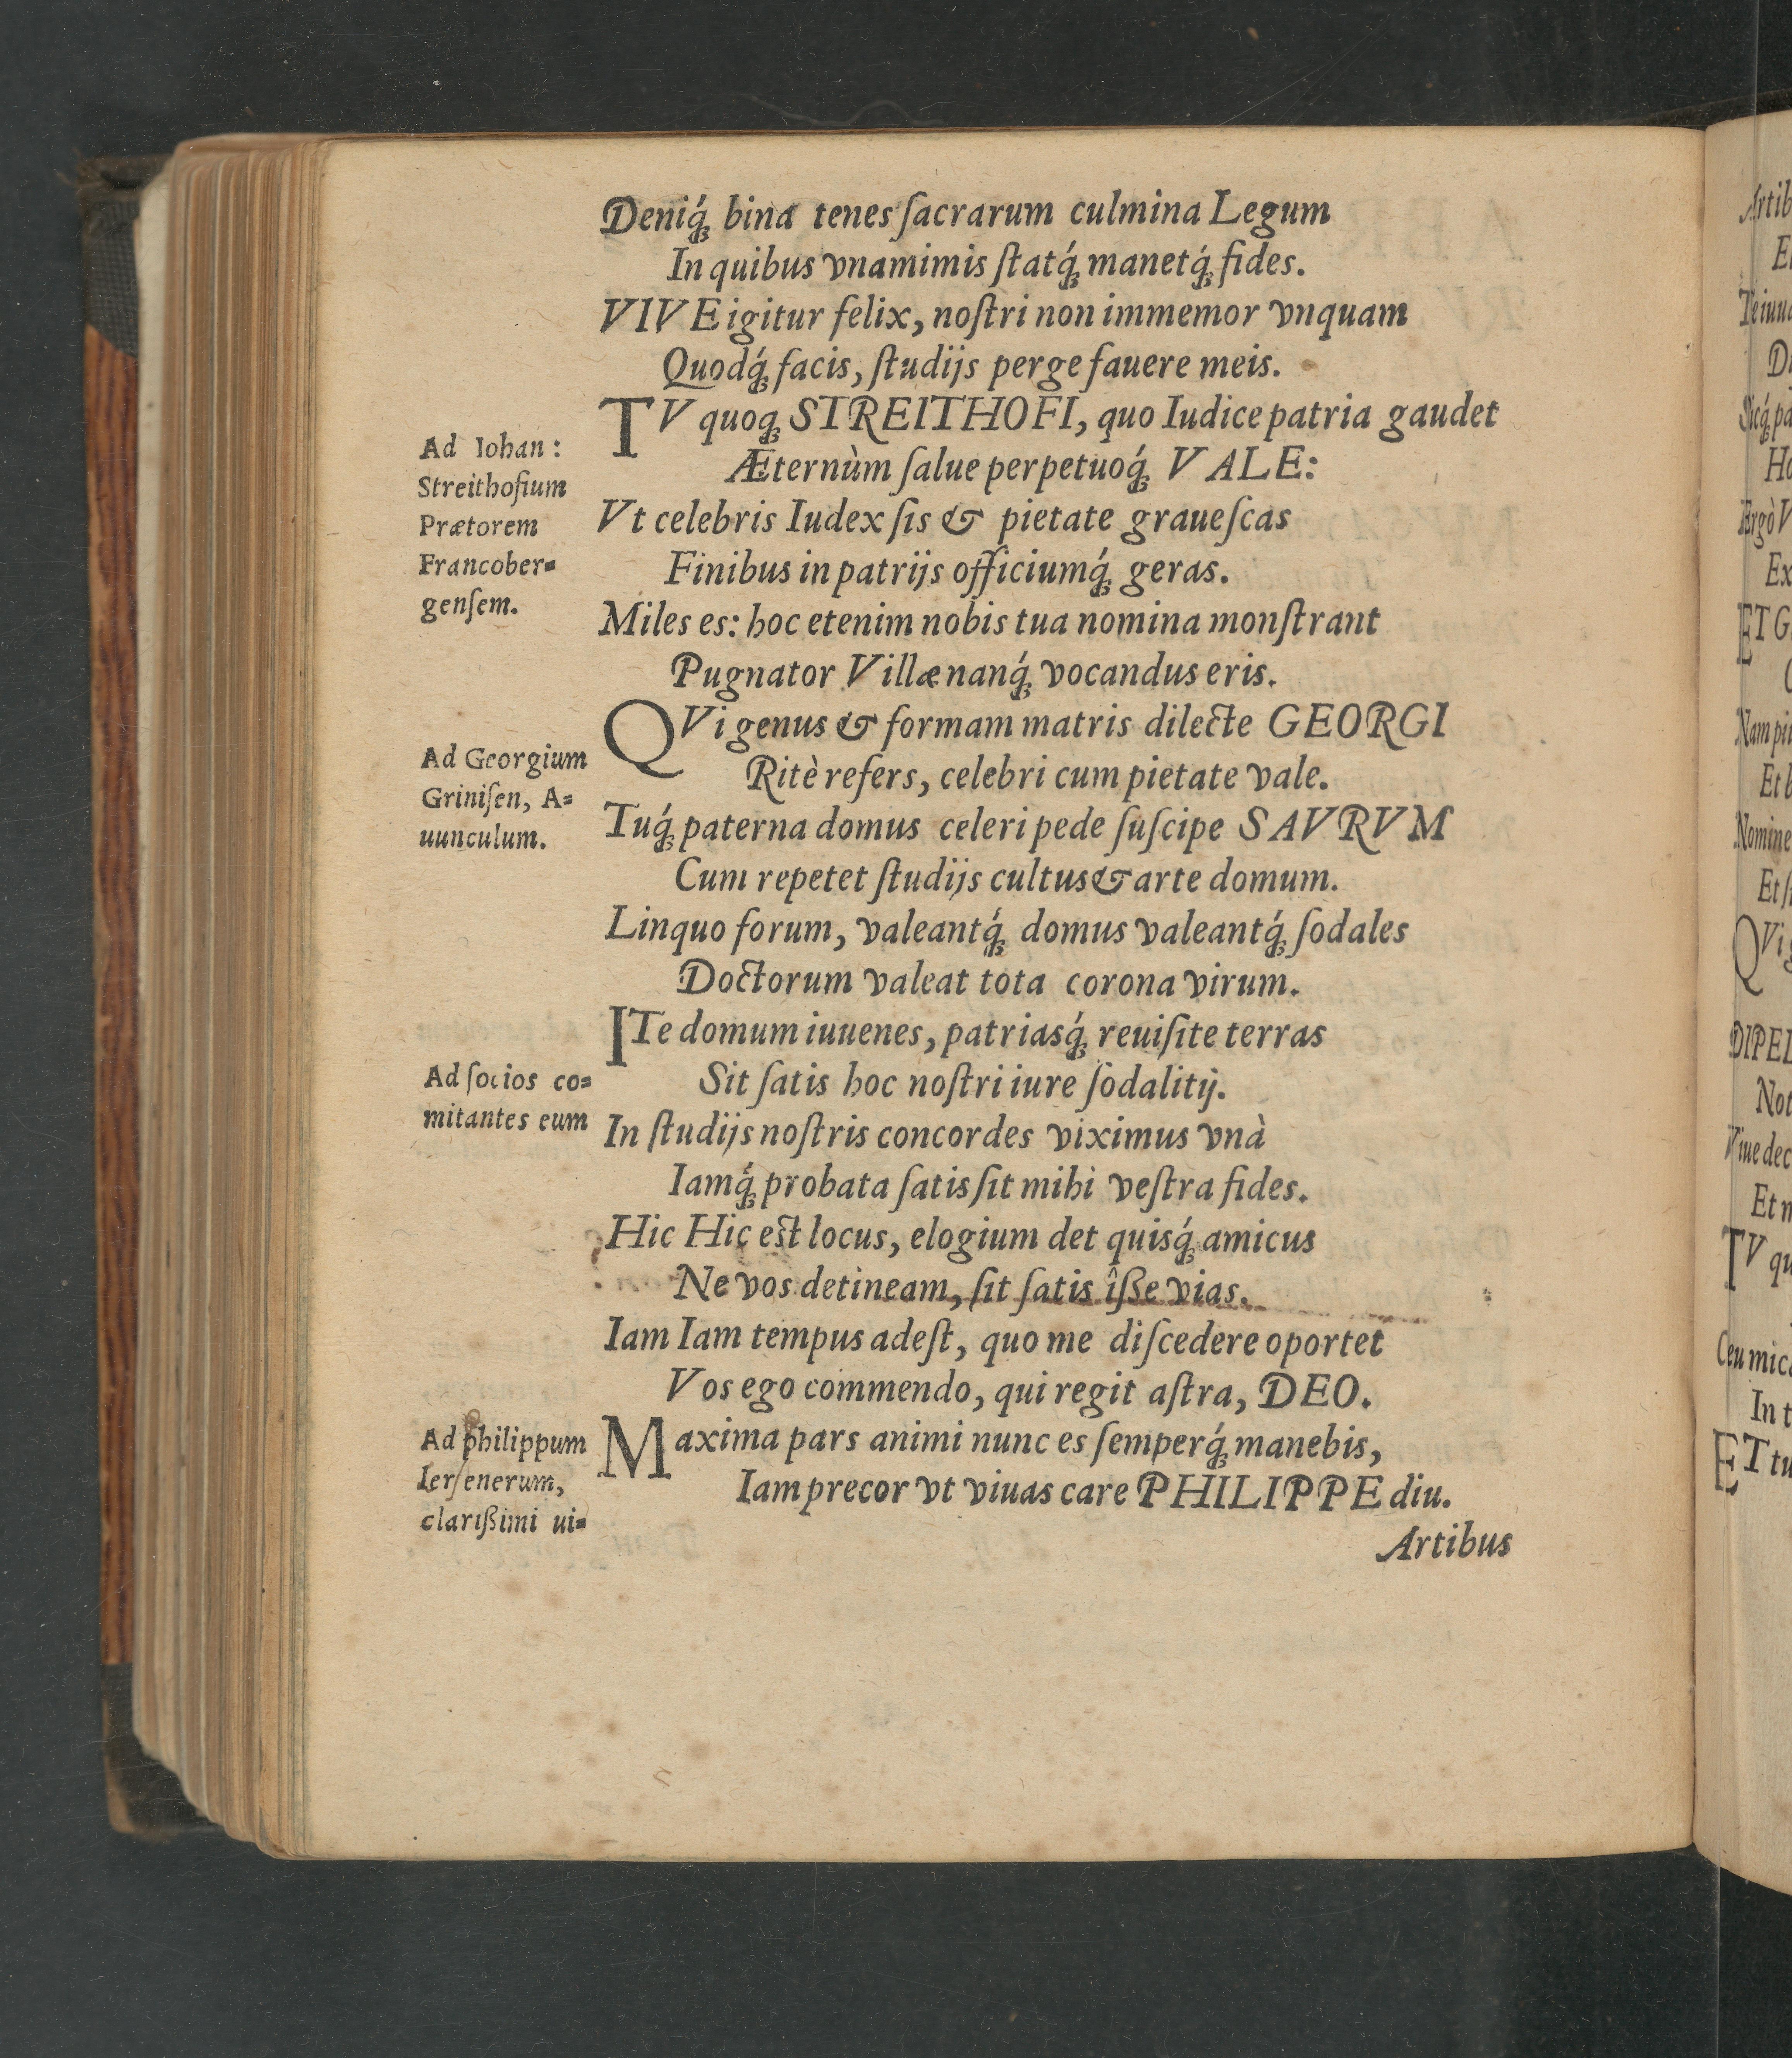 Deniq́ꝫ bina tenes ſacrarum culmina Legum
In quibus vnamimis ſtatq́ꝫ manetq́ꝫ fides.
VIVE igitur felix, noſtri non immemor vnquam
Quodq́ꝫ facis, ſtudijs perge fauere meis.
Ad Iohan:
Streithofium
Prætorem
Francober⸗
genſem.
TV quoqꝫ STREITHOFI, quo Iudice patria gaudet
Æternùm ſalue perpetuoq́ꝫ VALE:
Vt celebris Iudex ſis & pietate graueſcas
Finibus in patrijs officiumq́ꝫ geras.
Miles es: hoc etenim nobis tua nomina monſtrant
Pugnator Villæ nanq́ꝫ vocandus eris.
Ad Georgium
Griniſen, A⸗
uunculum.
QVi genus & formam matris dilecte GEORGI
Ritè refers, celebri cum pietate vale.
Tuq́ꝫ paterna domus celeri pede ſuſcipe SAVRVM
Cum repetet ſtudijs cultus & arte domum.
Linquo forum, valeantq́ꝫ domus valeantq́ꝫ ſodales
Doctorum valeat tota corona virum.
Ad ſocios co⸗
mitantes eum
ITe domum iuuenes, patriasq́ꝫ reuiſite terras
Sit ſatis hoc noſtri iure ſodalitij.
In ſtudijs noſtris concordes viximus vnà
Iamq́ꝫ probata ſatis ſit mihi veſtra fides.
Hic Hic est locus, elogium det quisq́ꝫ amicus
Ne vos detineam, ſit ſatis îſſe vias.
Iam Iam tempus adeſt, quo me diſcedere oportet
Vos ego commendo, qui regit aſtra, DEO.
Ad philippum
Ierſenerum,
clarißimi ui⸗
Maxima pars animi nunc es ſemperq́ꝫ manebis,
Iam precor vt viuas care PHILIPPE diu.
Artibus